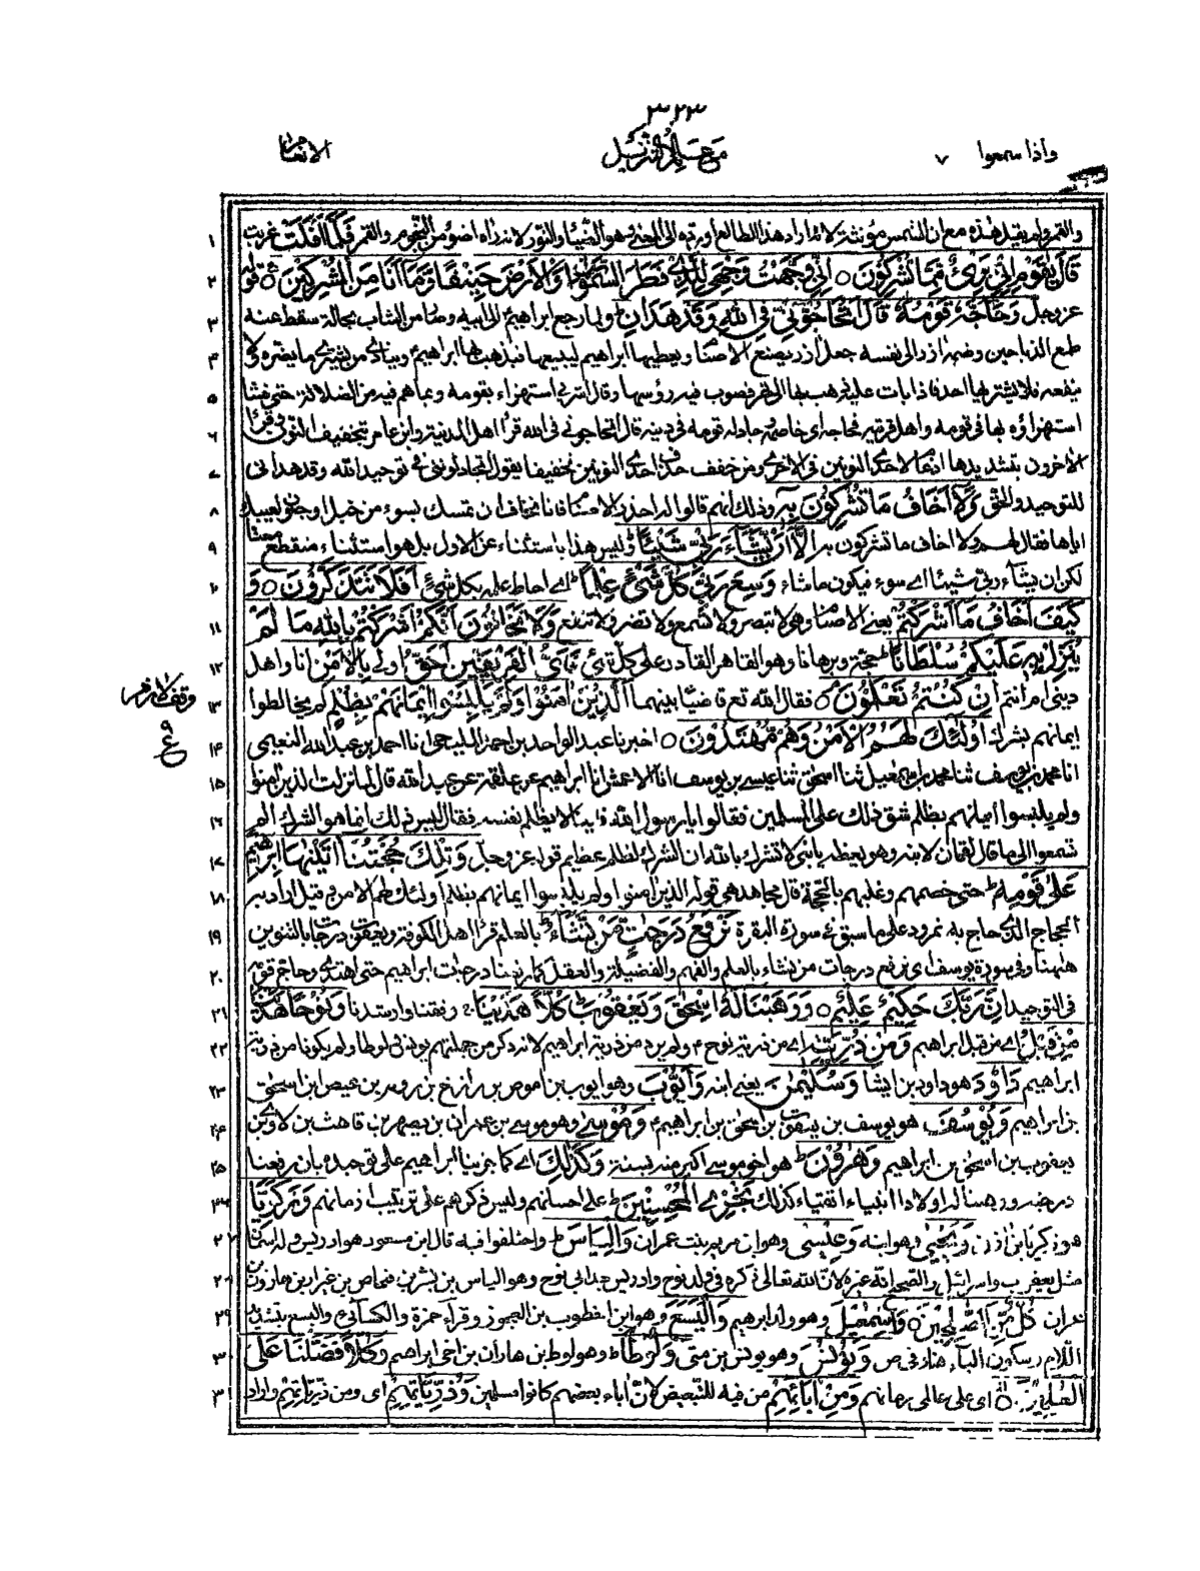 ٣٢٣
واذا سمعوا ٧
معالم التنزيل
الانعام
والقمر ولم يقل هذه مع ان الشمس مؤنثة لانه اراد هذا الطالع او رده الى المعنى وهو الضياء والنور لانه راه اضوء من النجوم والقمر فَلَمَّا أَفَلَتْ غربت
قَالَ يٰقَوْمِ اِنِّي بَرِيْءٌ مِّمَّا تُشْرِكُوْنَ ○ اِنِّي وَجَّهْتُ وَجْهِيَ لِلَّذِيْ فَطَرَ السَّمٰوٰتِ وَالْاَرْضَ حَنِيْفًا وَّمَا اَنَا مِنَ الْمُشْرِكِيْنَ ○ قوله
عز وجل وَحَاجَّهٗ قَوْمُهٗ قَالَ اَتُحَاجُّوْنِّيْ فِي اللّٰهِ وَقَدْ هَدَانِ ولما رجع ابراهيم الى ابيه وصار من الشباب بحالة سقط عنه
طمع الذباحين وضمه ازر الى نفسه جعل ازر يصنع الاصنام ويعطيها ابراهيم ليبيعها فيذهب بها ابراهيم وينادي من يشتري ما يضره ولا
ينفعه فلا يشتريها احد فاذا بارت عليه ذهب بها الى نهر فصوب فيه رؤسها وقال اشربي استهزاء بقومه وبما هم فيه من الضلالة حتى فشا
استهزاؤه بها في قومه واهل قريته فحاجه اى خاصمه وجادله قومه في دينه قال اتحاجوني في الله قرأ اهل المدينة وابن عامر بتخفيف النون وقرأ
الاخرون بتشديدها ادغاما لاحدى النونين في الاخرى ومن خفف حذف احدى النونين تخفيفا يقول اتجادلونني في توحيد الله وقد هداني
للتوحيد والحق وَلَا اَخَافُ مَا تُشْرِكُوْنَ بِهٖ وذلك انهم قالوا له احذر الاصنام فانا نخاف ان تمسك بسوء من خبل او جنون لعيبك
اياها فقال لهم ولا اخاف ما تشركون به اِلَّا اَنْ يَّشَاءَ رَبِّيْ شَيْئًا وليس هذا باستثناء عن الاول بل هو استثناء منقطع معناه
لكن ان يشاء ربي شيئا اى سوء فيكون ما شاء وَسِعَ رَبِّيْ كُلَّ شَيْءٍ عِلْمًا اى احاط علمه بكل شيء اَفَلَا تَتَذَكَّرُوْنَ ○ وَ
كَيْفَ اَخَافُ مَا اَشْرَكْتُمْ يعني الاصنام وهي لا تبصر ولا تسمع ولا تضر ولا تنفع وَلَا تَخَافُوْنَ اَنَّكُمْ اَشْرَكْتُمْ بِاللّٰهِ مَا لَمْ
يُنَزِّلْ بِهٖ عَلَيْكُمْ سُلْطَانًا حجة وبرهانا وهو القاهر القادر على كل شئ فَاَيُّ الْفَرِيْقَيْنِ اَحَقُّ اولى بِالْاَمْنِ انا واهل
ديني ام انتم اِنْ كُنْتُمْ تَعْلَمُوْنَ ○ فقال الله تع قاضيا بينهما اَلَّذِيْنَ اٰمَنُوْا وَلَمْ يَلْبِسُوْا اِيْمَانَهُمْ بِظُلْمٍ لم يخالطوا
ايمانهم بشرك اُولٰٓئِكَ لَهُمُ الْاَمْنُ وَهُمْ مُّهْتَدُوْنَ ○ اخبرنا عبد الواحد بن احمد المليحي انا احمد بن عبد الله النعيمي
انا محمد بن يوسف ثنا محمد بن اسمعيل ثنا اسحق ثنا عيسى بن يوسف انا الاعمش انا ابراهيم عن علقمة عن عبد الله قال لما نزلت الذين امنوا
ولم يلبسوا ايمانهم بظلم شق ذلك على المسلمين فقالوا يا رسول الله فاينا لا يظلم نفسه فقال ليس ذلك انما هو الشرك الم
تسمعوا الى ما قال لقمان لابنه وهو يعظه يابني لا تشرك بالله ان الشرك لظلم عظيم قوله عز وجل وَتِلْكَ حُجَّتُنَا اٰتَيْنٰهَا اِبْرٰهِيْمَ
عَلٰى قَوْمِهٖ حتى خصمهم وغلبهم بالحجة قال مجاهد هي قوله الذين امنوا ولم يلبسوا ايمانهم بظلم اولئك لهم الامن وقيل اراد به
الحجاج الذي حاج به نمرود على ما سبق في سورة البقرة نَرْفَعُ دَرَجٰتٍ مَّنْ نَّشَاءُ بالعلم قرأ اهل الكوفة ويعقوب درجات بالتنوين
ههنا وفي سورة يوسف اى نرفع درجات من نشاء بالعلم والفهم والفضيلة والعقل كما رفعنا درجات ابراهيم حتى اهتدى وحاج قومه
في التوحيد اِنَّ رَبَّكَ حَكِيْمٌ عَلِيْمٌ ○ وَوَهَبْنَا لَهٗ اِسْحٰقَ وَيَعْقُوْبَ كُلًّا هَدَيْنَا وفقنا وارشدنا وَنُوْحًا هَدَيْنَا
مِنْ قَبْلُ اى من قبل ابراهيم وَمِنْ ذُرِّيَّتِهٖ اى من ذرية نوح ولم يرد من ذرية ابراهيم لانه ذكر من جملتهم يونس ولوطا ولم يكونا من ذرية
ابراهيم دَاوٗدَ هو داود بن ايشا وَسُلَيْمٰنَ يعني ابنه وَاَيُّوْبَ وهو ايوب بن اموص بن رازخ بن روم بن عيص ابن اسحق
بن ابراهيم وَيُوْسُفَ هو يوسف بن يعقوب بن اسحق بن ابراهيم وَمُوْسٰى وهو موسى بن عمران بن يصهر بن قاهث بن لاوي بن
يعقوب بن اسحق بن ابراهيم وَهٰرُوْنَ هو اخو موسى اكبر منه بسنة وَكَذٰلِكَ اى كما جزينا ابراهيم على توحيده بان رفعنا
درجته ووهبنا له اولادا انبياء اتقياء كذلك نَجْزِي الْمُحْسِنِيْنَ على احسانهم وليس ذكرهم على ترتيب ازمانهم وَزَكَرِيَّا
هو زكريا بن اذن وَيَحْيٰى وهو ابنه وَعِيْسٰى وهو ابن مريم بنت عمران وَاِلْيَاسَ واختلفوا فيه قال ابن مسعود هو ادريس وله اسمان
مثل يعقوب واسرائيل والصحيح انه غيره لان الله تعالى ذكره في ولد نوح وادريس جد ابي نوح وهو الياس بن بشر بن فنحاص بن عيزار بن هارون بن
عمران كُلٌّ مِّنَ الصّٰلِحِيْنَ ○ وَاِسْمٰعِيْلَ وهو ولد ابراهيم وَالْيَسَعَ وهو ابن اخطوب بن العجوز وقرأ حمزة والكسائي والليسع بتشديد
اللام وسكون الياء هنا وفي ص وَيُوْنُسَ وهو يونس بن متى وَلُوْطًا وهو لوط بن هاران بن اخي ابراهيم وَكُلًّا فَضَّلْنَا عَلَى
الْعٰلَمِيْنَ ○ اى على عالمي زمانهم وَمِنْ اٰبَائِهِمْ من فيه للتبعيض لان اباء بعضهم كانوا مسلمين وَذُرِّيّٰتِهِمْ اى ومن ذرياتهم واراد